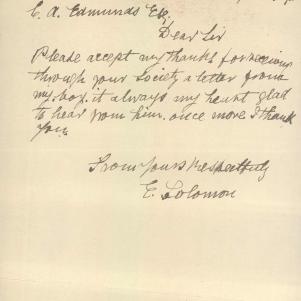 C. A. Edmunds Esq.
Dear Sir
Please accept my thanks for receiving
through your Society a letter from
my boy. it always my heart glad
to hear from him. once more I thank
you
From Yours Respectfully
E. Solomon